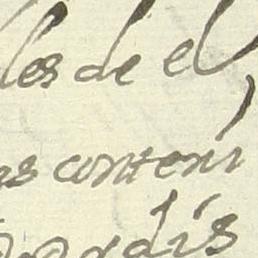 les de el
as conteni
dis